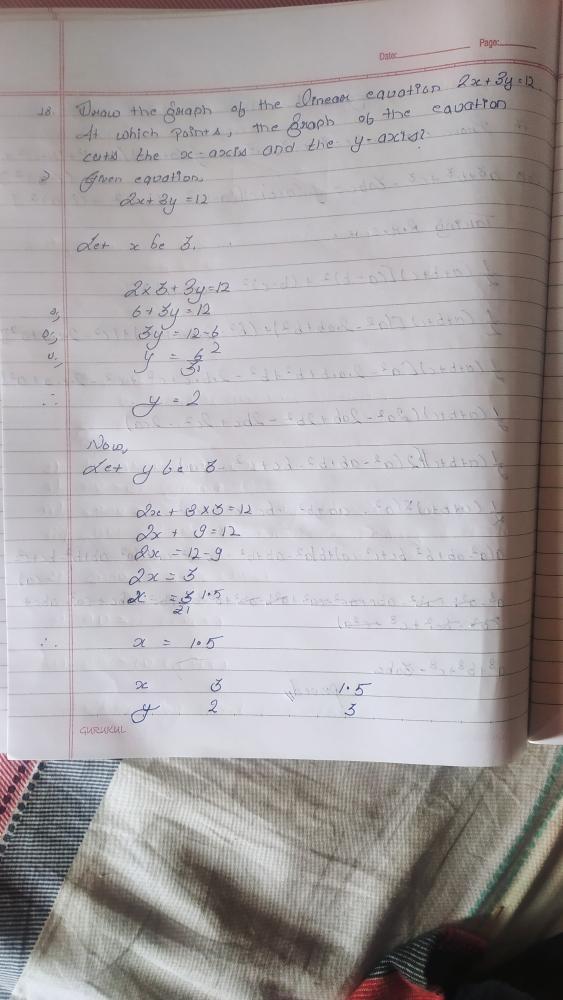 Date: Page:
18. Draw the graph of the linear equation 2x+3y=12.
At which points, the graph of the equation
cuts the x-axis and the y-axis?
Given equation,
2x+3y=12
Let x be 3.
2×3+3y=12
6+3y=12
3y = 12-6
y = 6 2
3 1
∴ y = 2
Now,
Let y be 3
2x + 3×3=12
2x + 9=12
2x = 12-9
2x = 3
x = 3 1.5
2 1
∴ x = 1.5
x 3 1.5
y 2 3
GURUKUL